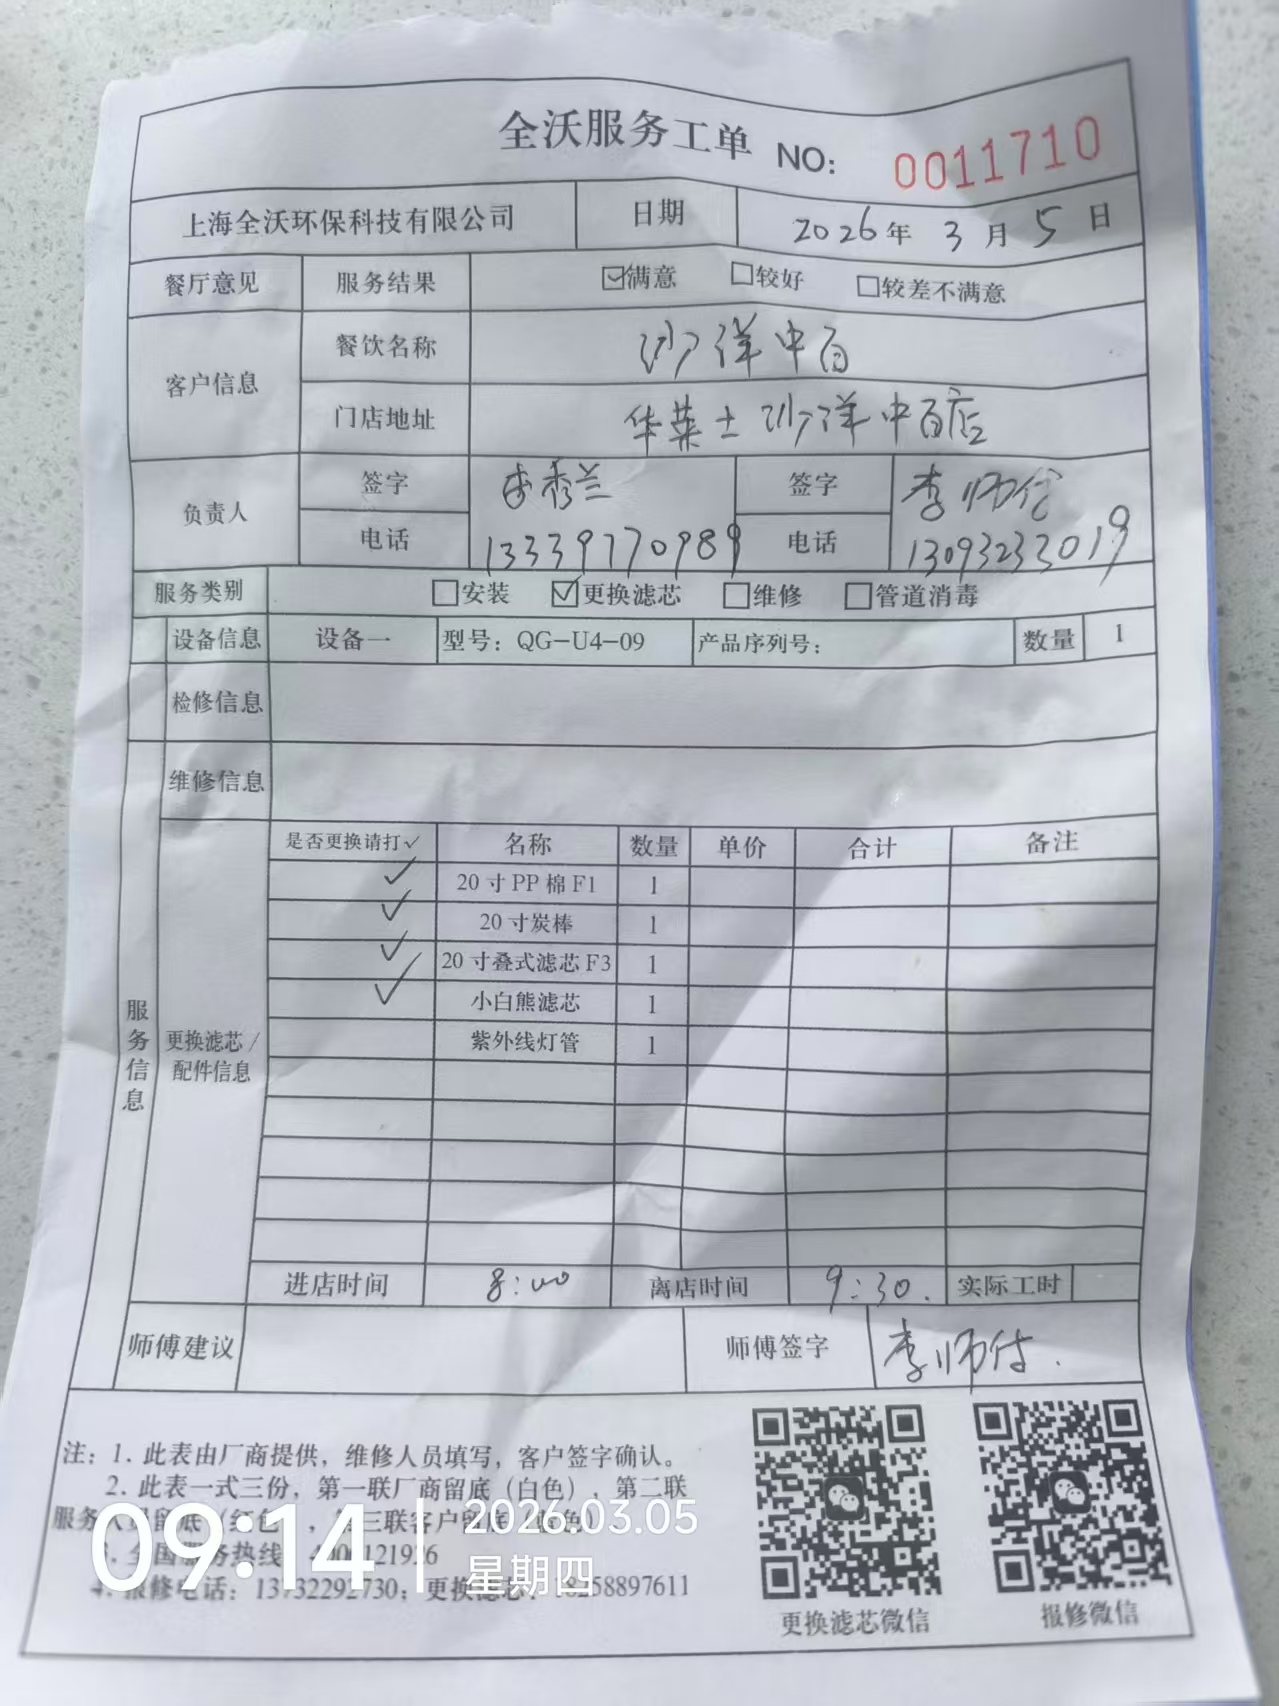 全沃服务工单 NO: 0011710
上海全沃环保科技有限公司 日期 2026年 3月 5日
餐厅意见 服务结果 ☑满意 □较好 □较差不满意
客户信息 餐饮名称 沙洋中百
门店地址 华莱士沙洋中百店
负责人 签字 李秀兰 签字 李师付
电话 13339770989 电话 13093233019
服务类别 □安装 ☑更换滤芯 □维修 □管道消毒
设备信息 设备一 型号：QG-U4-09 产品序列号： 数量 1
检修信息
维修信息
服务信息
更换滤芯/配件信息
是否更换请打✓ 名称 数量 单价 合计 备注
✓ 20寸PP棉F1 1
✓ 20寸炭棒 1
✓ 20寸叠式滤芯F3 1
✓ 小白熊滤芯 1
紫外线灯管 1
进店时间 8:00 离店时间 9:30. 实际工时
师傅建议 师傅签字 李师付.
注：1. 此表由厂商提供，维修人员填写，客户签字确认。
2. 此表一式三份，第一联厂商留底（白色），第二联
服务人员留底（红色），第三联客户留底
3. 全国服务热线
4. 报修电话：13732292730；更换滤芯：18258897611
更换滤芯微信
报修微信
09:14 2026.03.05
星期四